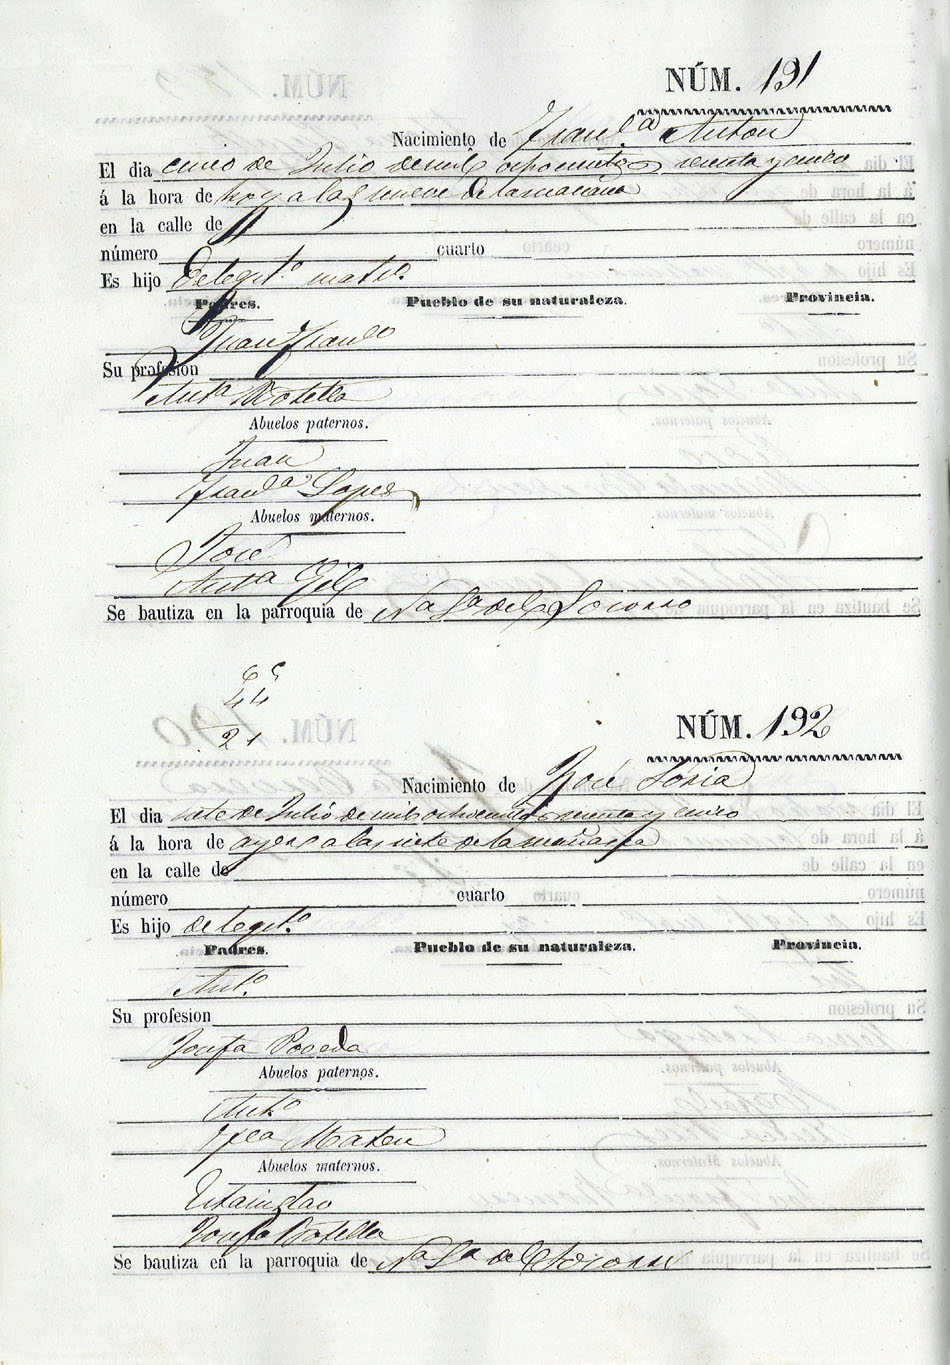 NÚM. 191
Nacimiento de Fran.ca Anton
El dia cinco de Julio de mil ochocientos sesenta y cinco
á la hora de hoy a las nueve de la mañana
en la calle de
número cuarto
Es hijo de legit.o mat.o
Padres. Pueblo de su naturaleza. Provincia.
Juan Fran.co
Su profesion
Ant.a Botella
Abuelos paternos.
Juan
Fran.ca Lopez
Abuelos maternos.
José
Ant.a Gil
Se bautiza en la parroquia de Na Sa del Socorro
44
21
NÚM. 192
Nacimiento de José Soria
El dia siete de Julio de mil ochocientos sesenta y cinco
á la hora de ayer a las siete de la mañana
en la calle de
número cuarto
Es hijo de legit.o
Padres. Pueblo de su naturaleza. Provincia.
Ant.o
Su profesion
Josefa Poveda
Abuelos paternos.
Ant.o
Mateu
Abuelos maternos.
Estanislao
Josefa Botella
Se bautiza en la parroquia de Na Sa del Socorro